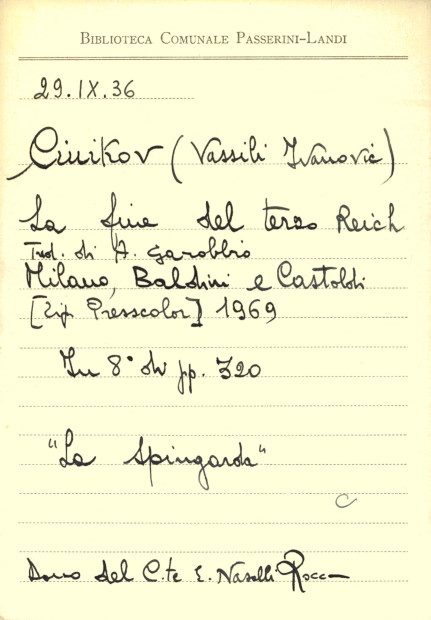 BIBLIOTECA COMUNALE PASSERINI-LANDI
29.IX.36
Ciuikov (Vassili Ivanovič)
La fine del terzo Reich
Trad. di A. Garobbio
Milano, Baldini e Castoldi
[Tip. Presscolor] 1969
In 8° di pp. 320
"La Spingarda"
C
Dono del C.te E. Naselli Rocca